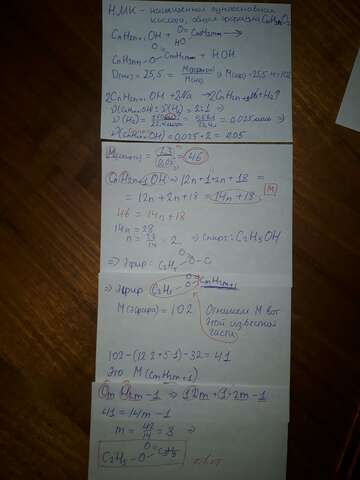 НМК - ненасыщенная одноосновная
кислота, общая формула CnHmO2
CnH2n+1 OH + O HO CmH2m-1 →
CnH2n+1 - O - O CmH2m-1 + HOH
D(H2) = 25,5 = M(эфира) / M(H2) ⇒ M(эф) = 25,5·4 = 102
2CnH2n+1 OH + 2Na → 2CnH2n+1 ONa + H2↑
ν(CnH2n+1OH) : ν(H2) = 2:1 ⇒
ν(H2) = = = 0,025 моль ⇒
ν(CnH2n+1OH) = 0,025·2 = 0,05
M(спирта) = 2,3 / 0,05 = 46
CnH2n+1OH ⇒ 12n+1+2n+18 =
= 12n+2n+18 = 14n+18 M
46 = 14n+18
14n = 28
n = 28/14 = 2 ⇒ спирт: C2H5OH
⇒ Эфир: C2H5 - O - C O
⇒ Эфир C2H5 - O O CmH2m-1
M(эфира) = 102 Отнимем M вот
этой известной
части
102-(12·2+5·1)-32 = 41
Это M(CmH2m-1)
CmH2m-1 ⇒ 12m+1·2m-1
41 = 14m-1
m = 42/14 = 3 ⇒
C2H5 - O - O C3H5 ответ